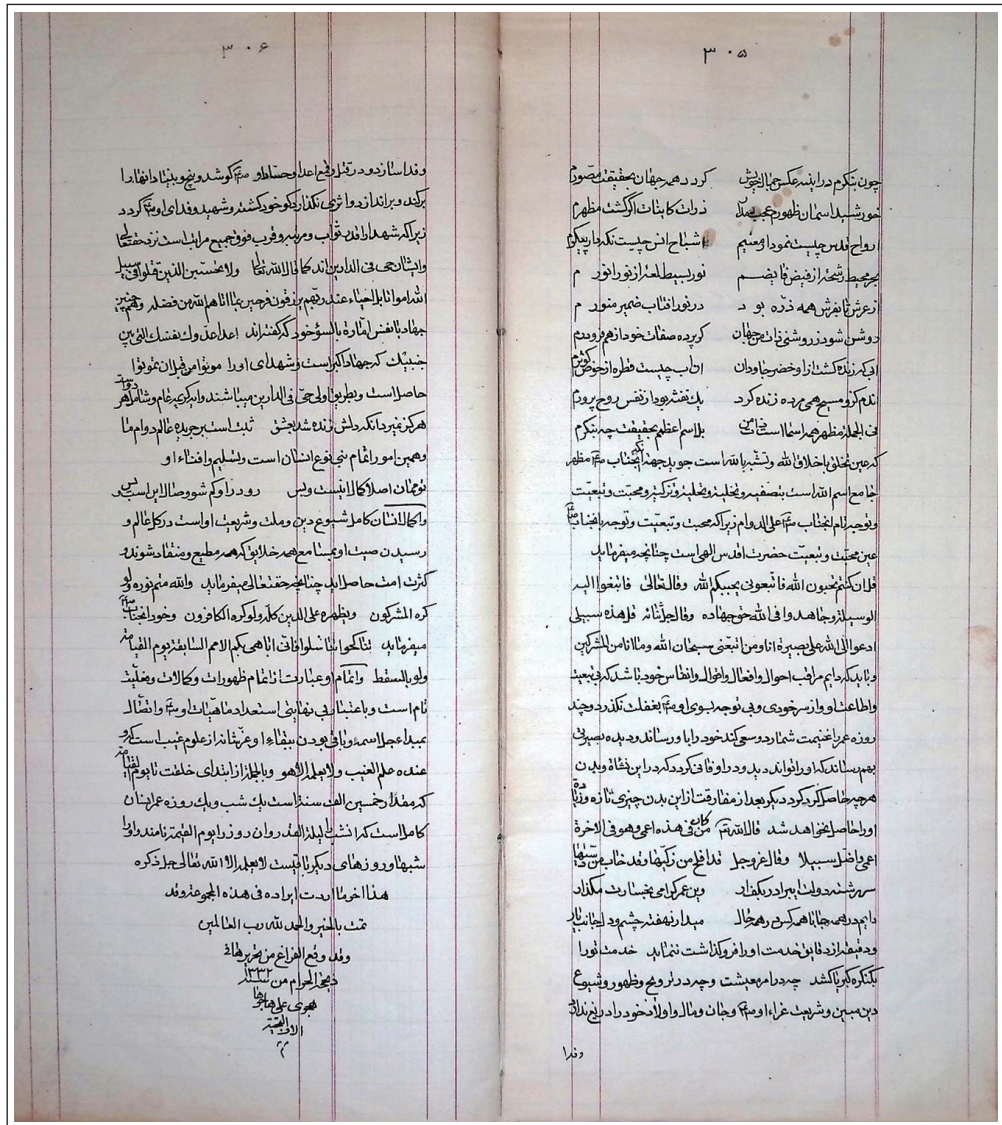 ۳۰۵
چون بنگرم در آینه عکس جمال خویش گردد همه جهان بحقیقت مصورم
خورشید آسمان ظهورم عجب مدار ذرات کاینات اگر گشت مظهرم
ارواح قدس چیست نمودار معنیم اشباح انس چیست نگهدار پیکرم
بحر محیط رشحهٔ از فیض فایضم نور بسیط لمعهٔ از نور انورم
از عرش تا بفرش همه ذرهٔ بود در نور آفتاب ضمیر منورم
روشن شود ز روشنی ذات من جهان گر پردهٔ صفات خود از هم فرو درم
آبی که زنده گشت ازو خضر جاودان آن آب چیست قطرهٔ از حوض کوثرم
آندم کزو مسیح همی مرده زنده کرد یک نفثه بود از نفس روح پرورم
فی الجمله مظهر همه اسماست ذات من بل اسم اعظم بحقیقت چه بنگرم
که عین تخلق باخلاق الله و تشبه بالله است جوید چه آنکه آنجناب مظهر
جامع اسم الله است بتصفیه و تخلیه و تحلیه و تزکیه و محبت و تبعیت
و توجه تام آنجناب علی الدوام زیرا که محبت و تبعیت و توجه بآنجناب
عین محبت و تبعیت حضرت اقدس الهی است چنانچه میفرماید
قل ان کنتم تحبون الله فاتبعونی یحببکم الله وقال تعالی فابتغوا الیه
الوسیلة وجاهدوا فی الله حق جهاده وقال جل شانه قل هذه سبیلی
ادعوا الی الله علی بصیرة انا ومن اتبعنی سبحان الله وما انا من المشرکین
و باید که دایم مراقب احوال و افعال و اقوال و انفاس خود باشد که بی تبعیت
و اطاعت او و از سر خودی و بی توجه بسوی او بغفلت نگذرد و چند
روزه عمر را غنیمت شمارد و سعی کند خود را باو رساند و دیدهٔ بصیرتی
بهم رساند که او را تواند دید و در او فانی گردد که در این نشأة و بدن
هر چه حاصل کرد کرد دیگر بعد از مفارقت از این بدن چیزی تازه و زیاده
او را حاصل نخواهد شد قال الله من کان فی هذه اعمی وهو فی الاخرة
اعمی واضل سبیلا وقال عز وجل قد افلح من زکیها وقد خاب من دسیها
سر رشتهٔ دولت ای برادر بکف آر وین عمر گرامی بخسارت مگذار
دایم همه جا با همه کس در همه حال میدار نهفته چشم دل جانب یار
و دقیقهٔ از دقایق خدمت او را فرو گذاشت ننماید خدمت تو را
بکنگرهٔ کبریا کشد چه در امر معیشت و چه در ترویج و ظهور و شیوع
دین مبین و شریعت غراء او و جان و مال و اولاد خود را دریغ ندارد
و فدا
۳۰۶
و فدا سازد و در قتل و قمع اعدا و حساد او کوشد و بیخ و بنیاد آنها را
برکند و براندازد و اثری نگذارد گو خود کشته و شهید و فدای او گردد
زیرا که شهدا را قدر ثواب و مرتبه و قرب فوق جمیع مراتب است نزد حقتعالی
و ایشان حی فی الدارین اند کما قال الله تعالی ولا تحسبن الذین قتلوا فی سبیل
الله امواتا بل احیاء عند ربهم یرزقون فرحین بما اتاهم الله من فضله و همچنین
جهاد با نفس اماره بالسوء خود که گفته اند اعدا عدوک نفسک التی بین
جنبیک که جهاد اکبر است و شهدای او را موتوا من قبل ان تموتوا
حاصل است و بطریق اولی حی فی الدارین میباشند و آیهٔ کریمه عام و شامل هر دو است
هرگز نمیرد آنکه دلش زنده شد بعشق ثبت است بر جریدهٔ عالم دوام ما
و همین امور اتمام بنی نوع انسان است و تسلیم و افناء او
تو ممان اصلا کمال اینست و بس رو در او گم شو وصال اینست و بس
و اکمال انسان کامل شیوع دین و ملت و شریعت او است در کل عالم و
رسیدن صیت او بمسامع همه خلایق که همه مطیع و منقاد شوند و
کثرت امت حاصل آید چنانچه حقتعالی میفرماید والله متم نوره ولو
کره المشرکون ویظهره علی الدین کله ولو کره الکافرون و خود آنجناب
میفرماید تناکحوا تناسلوا فانی اباهی بکم الامم السابقة یوم القیامة
ولو بالسقط و اتمام او عبارت از اتمام ظهورات و کمالات و مغلبیت
تام است و باعتبار بی نهایتی استعداد ماهیات او و اتصال
بمبداء جل اسمه و باقی بودن ببقاء او عز شانه از علوم غیب است که و
عنده علم الغیب ولا یعلمه الا هو و بالجمله از ابتدای خلقت تا یوم القیامة
که مقدار خمسین الف سنة است یک شب و یک روزه عمر انسان
کامل است که آنشب را لیلة القدر و آن روز را یوم القیمة نامند و او را
شبها و روزهای دیگر باقیست لا یعلمه الا الله تعالی جل ذکره
هذا آخر ما اردت ایراده فی هذه المجموعة وقد
تمت بالخیر والحمد لله رب العالمین
وقد وقع الفراغ من تحریرها فی
ذیحجة الحرام من سنة ۱۳۳۲
هجری علی هاجرها
الاف التحیة
م م